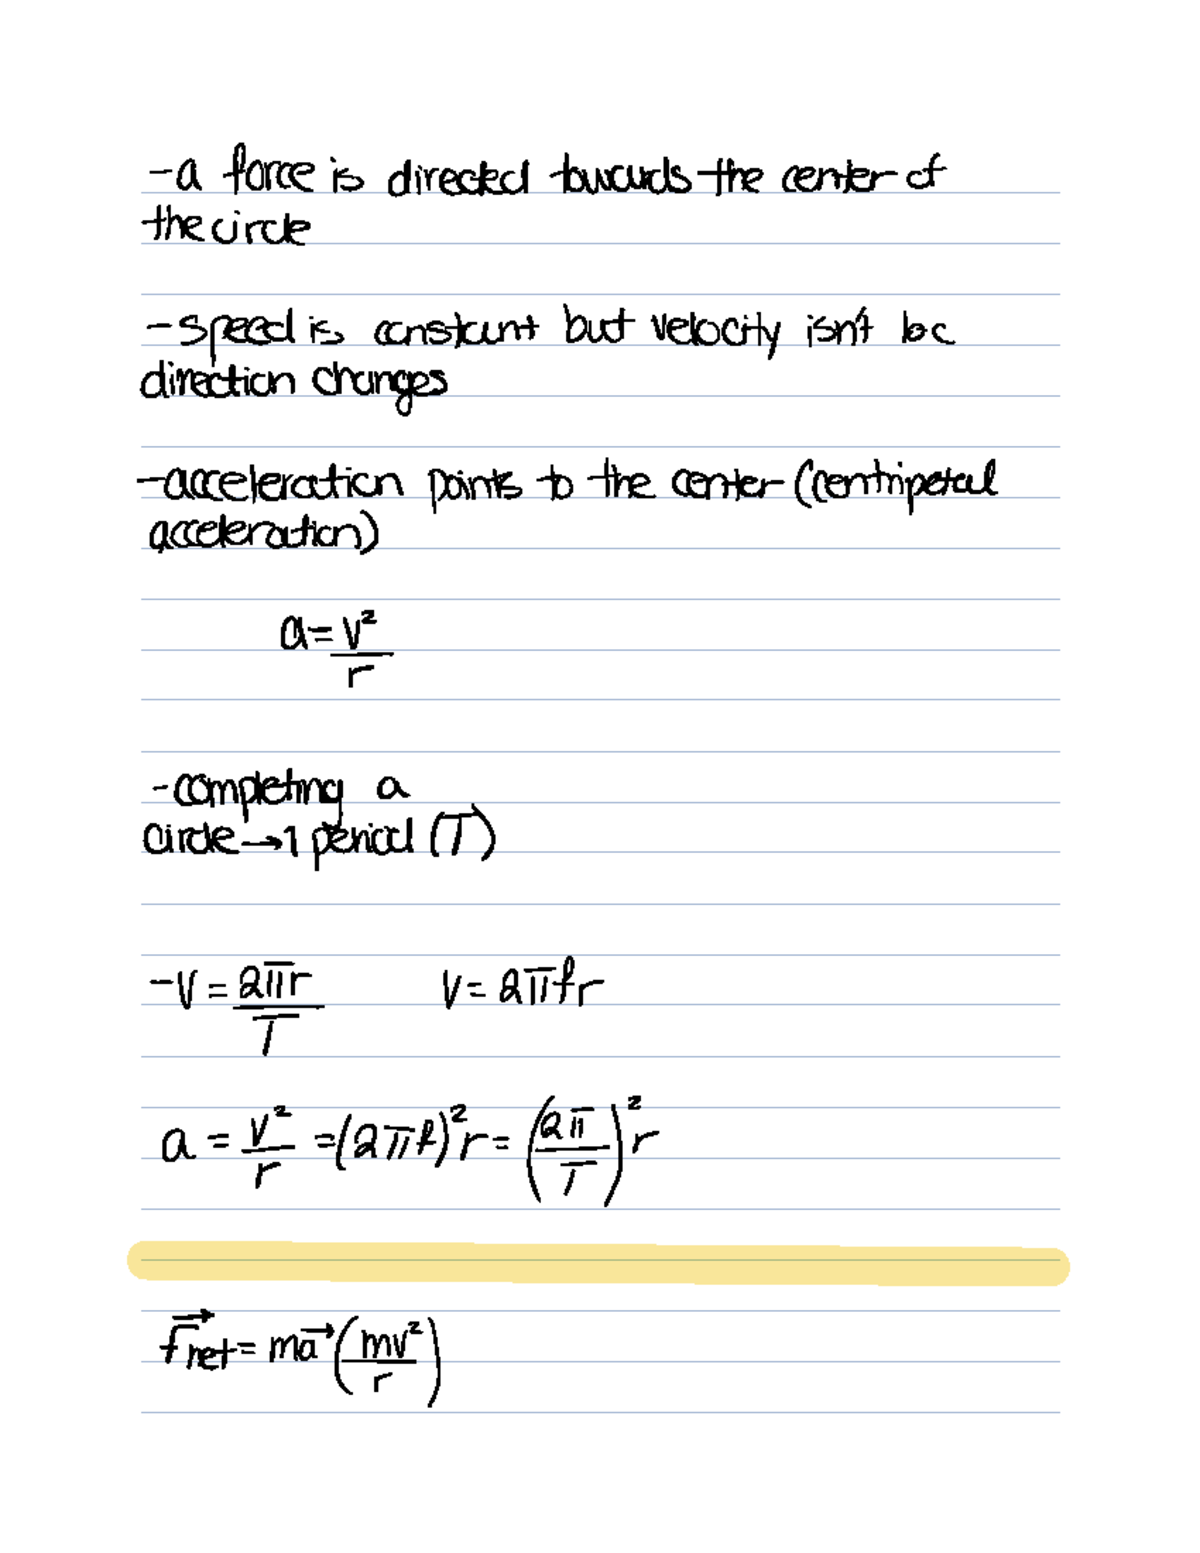 -a force is directed towards the center of
the circle
-speed is constant but velocity isn't bc
direction changes
-acceleration points to the center (centripetal
acceleration)
a = v²/r
-completing a
circle → 1 period (T)
-v = 2πr/T    v = 2πfr
a = v²/r = (2πf)²r = (2π/T)²r
F⃗net = ma⃗ (mv²/r)